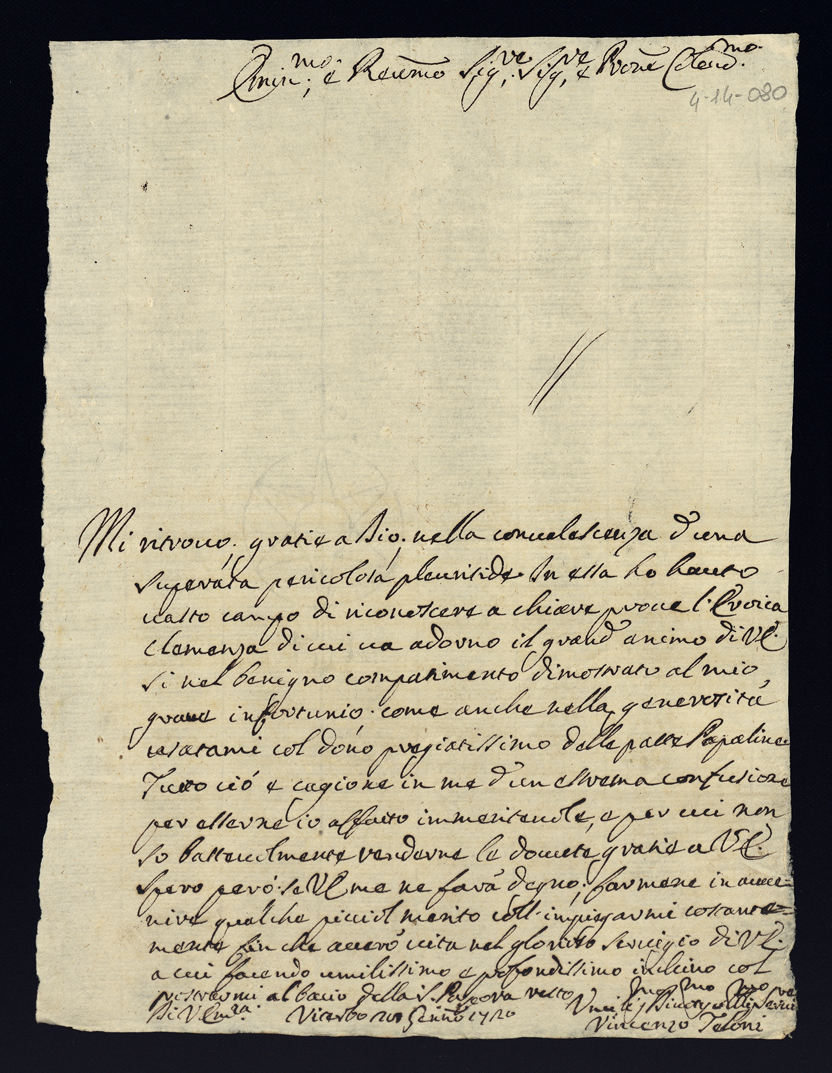 Emin:mo, e Reu̅mo Sig:re, Sig:re, e Pro̅ne Colend:mo
4-14-080
Mi ritrouo, gratie a Dio, nella conualescenza d'una
superata pericolosa pleuritide. In essa ho hauto
uasto campo di riconoscere a chiare proue l'Eroica
Clemenza di cui ua adorno il grand'animo di VE.
si nel benigno compatimento dimostrato al mio
graue infortunio. come anche nella generosità
usatami col dono pregiatissimo delle palle Papaline
Tutto ció e cagione in me d'un estrema confusione
per esserne io affatto immeriteuole, e per cui non
so basteuolmente renderne le douute gratie a VE.
Spero peró. se VE me ne fará degno, farmene in auue=
nire qualche picciol merito coll'impiegarmi costante=
mente fin che auerò uita nel glorioso seruigio di VE.
a cui facendo umilissimo e profondissimo inchino col
prostrarmi al bacio della S. Porpora resto
Di VEm:za Viterbo 20 Genn:o 1720
Vincenzo Teloni